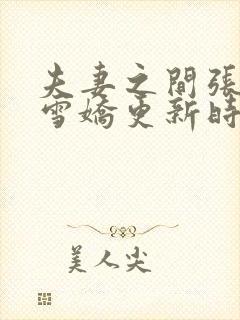 夫妻之間張
雪嬌更新時
美人尖